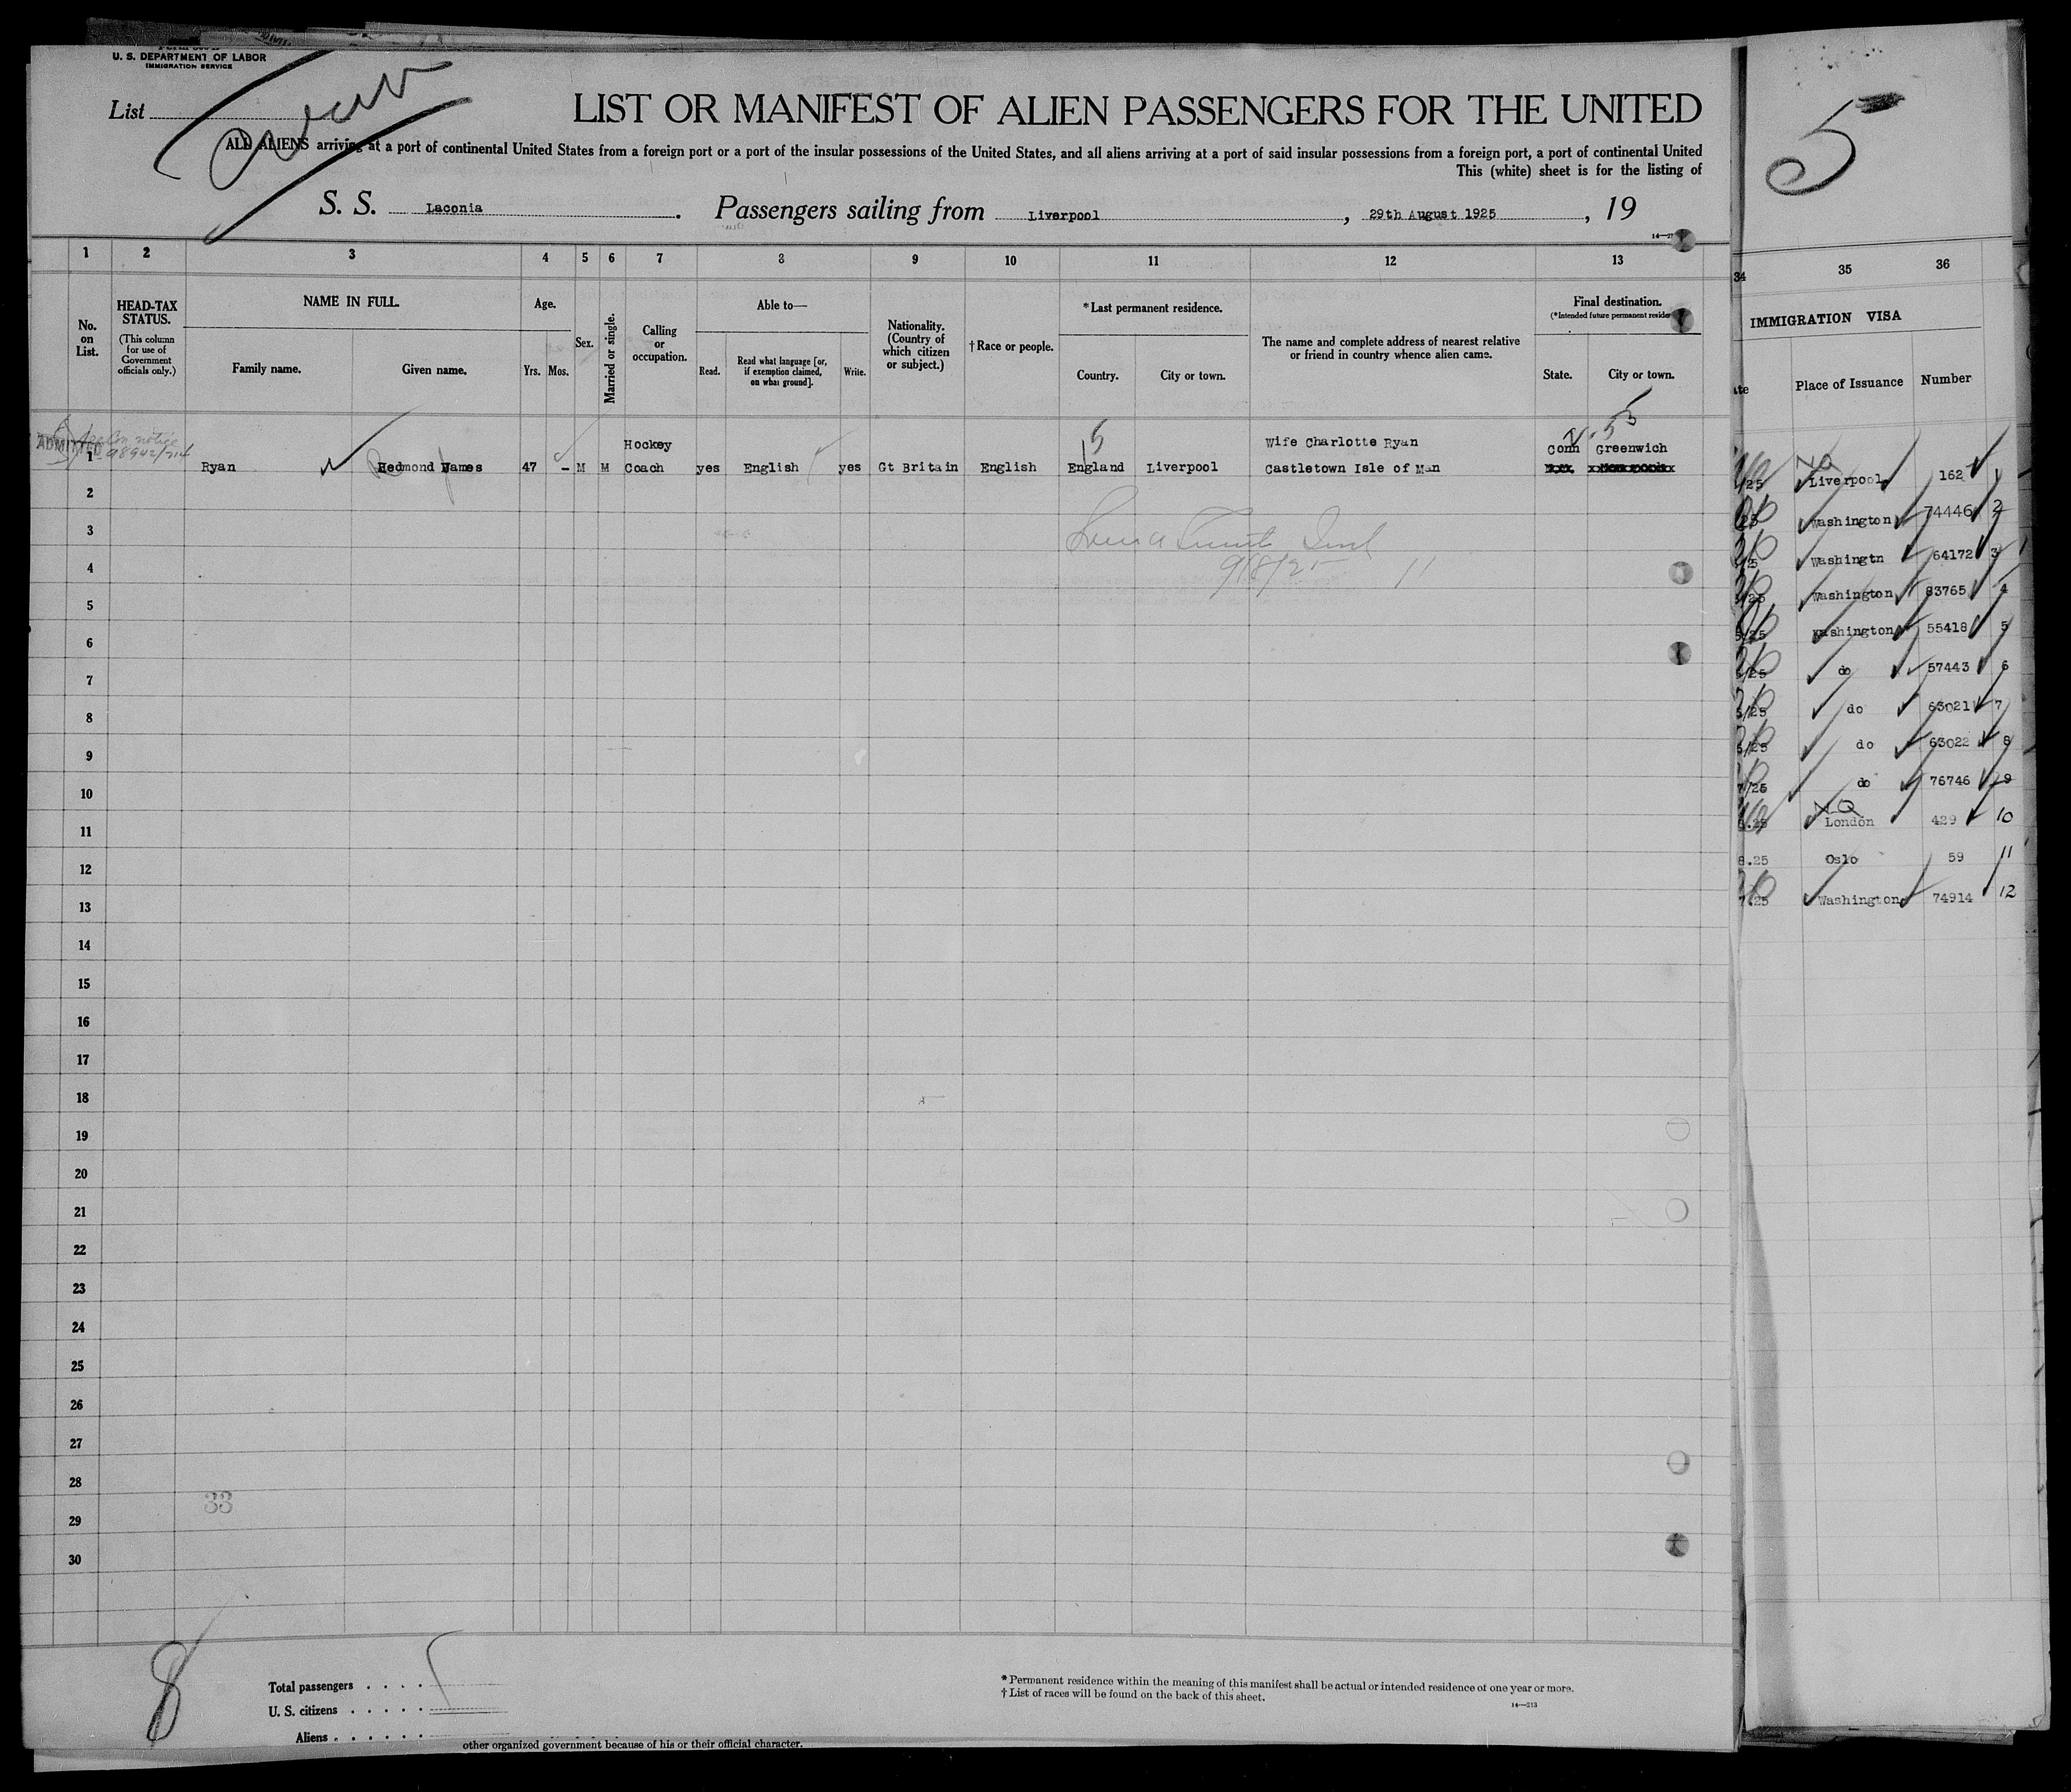 U. S. DEPARTMENT OF LABOR
IMMIGRATION SERVICE
List
LIST OR MANIFEST OF ALIEN PASSENGERS FOR THE UNITED
ALL ALIENS arriving at a port of continental United States from a foreign port or a port of the insular possessions of the United States, and all aliens arriving at a port of said insular possessions from a foreign port, a port of continental United
This (white) sheet is for the listing of
S. S. Laconia. Passengers sailing from Liverpool, 29th August 1925, 19
5
1 2 3 4 5 6 7 8 9 10 11 12 13
No. on List.
HEAD-TAX STATUS.
(This column for use of Government officials only.)
NAME IN FULL.
Family name. Given name.
Age.
Yrs. Mos.
Sex.
Married or single.
Calling or occupation.
Able to—
Read. Read what language [or, if exemption claimed, on what ground]. Write.
Nationality. (Country of which citizen or subject.)
†Race or people.
*Last permanent residence.
Country. City or town.
The name and complete address of nearest relative or friend in country whence alien came.
Final destination.
(*Intended future permanent reside
State. City or town.
ADMITTED
Hockey Wife Charlotte Ryan Conn Greenwich
1 Ryan Redmond James 47 - M M Coach yes English yes Gt Britain English England Liverpool Castletown Isle of Man
2
3
4
9/8/25 11
5
6
7
8
9
10
11
12
13
14
15
16
17
18
19
20
21
22
23
24
25
26
27
28
33
29
30
8
Total passengers
U. S. citizens
Aliens
*Permanent residence within the meaning of this manifest shall be actual or intended residence of one year or more.
†List of races will be found on the back of this sheet.
14—213
other organized government because of his or their official character.
34 35 36
IMMIGRATION VISA
Place of Issuance Number
NQ
/25 Liverpool 162 1
25 Washington 74446 2
Washingtn 64172 3
/25 Washington 83765 4
/25 Washington 55418 5
/25 do 57443 6
5/25 do 63021 7
/25 do 63022 8
7/25 do 76746 9
NQ
.25 London 429 10
8.25 Oslo 59 11
7.25 Washington 74914 12